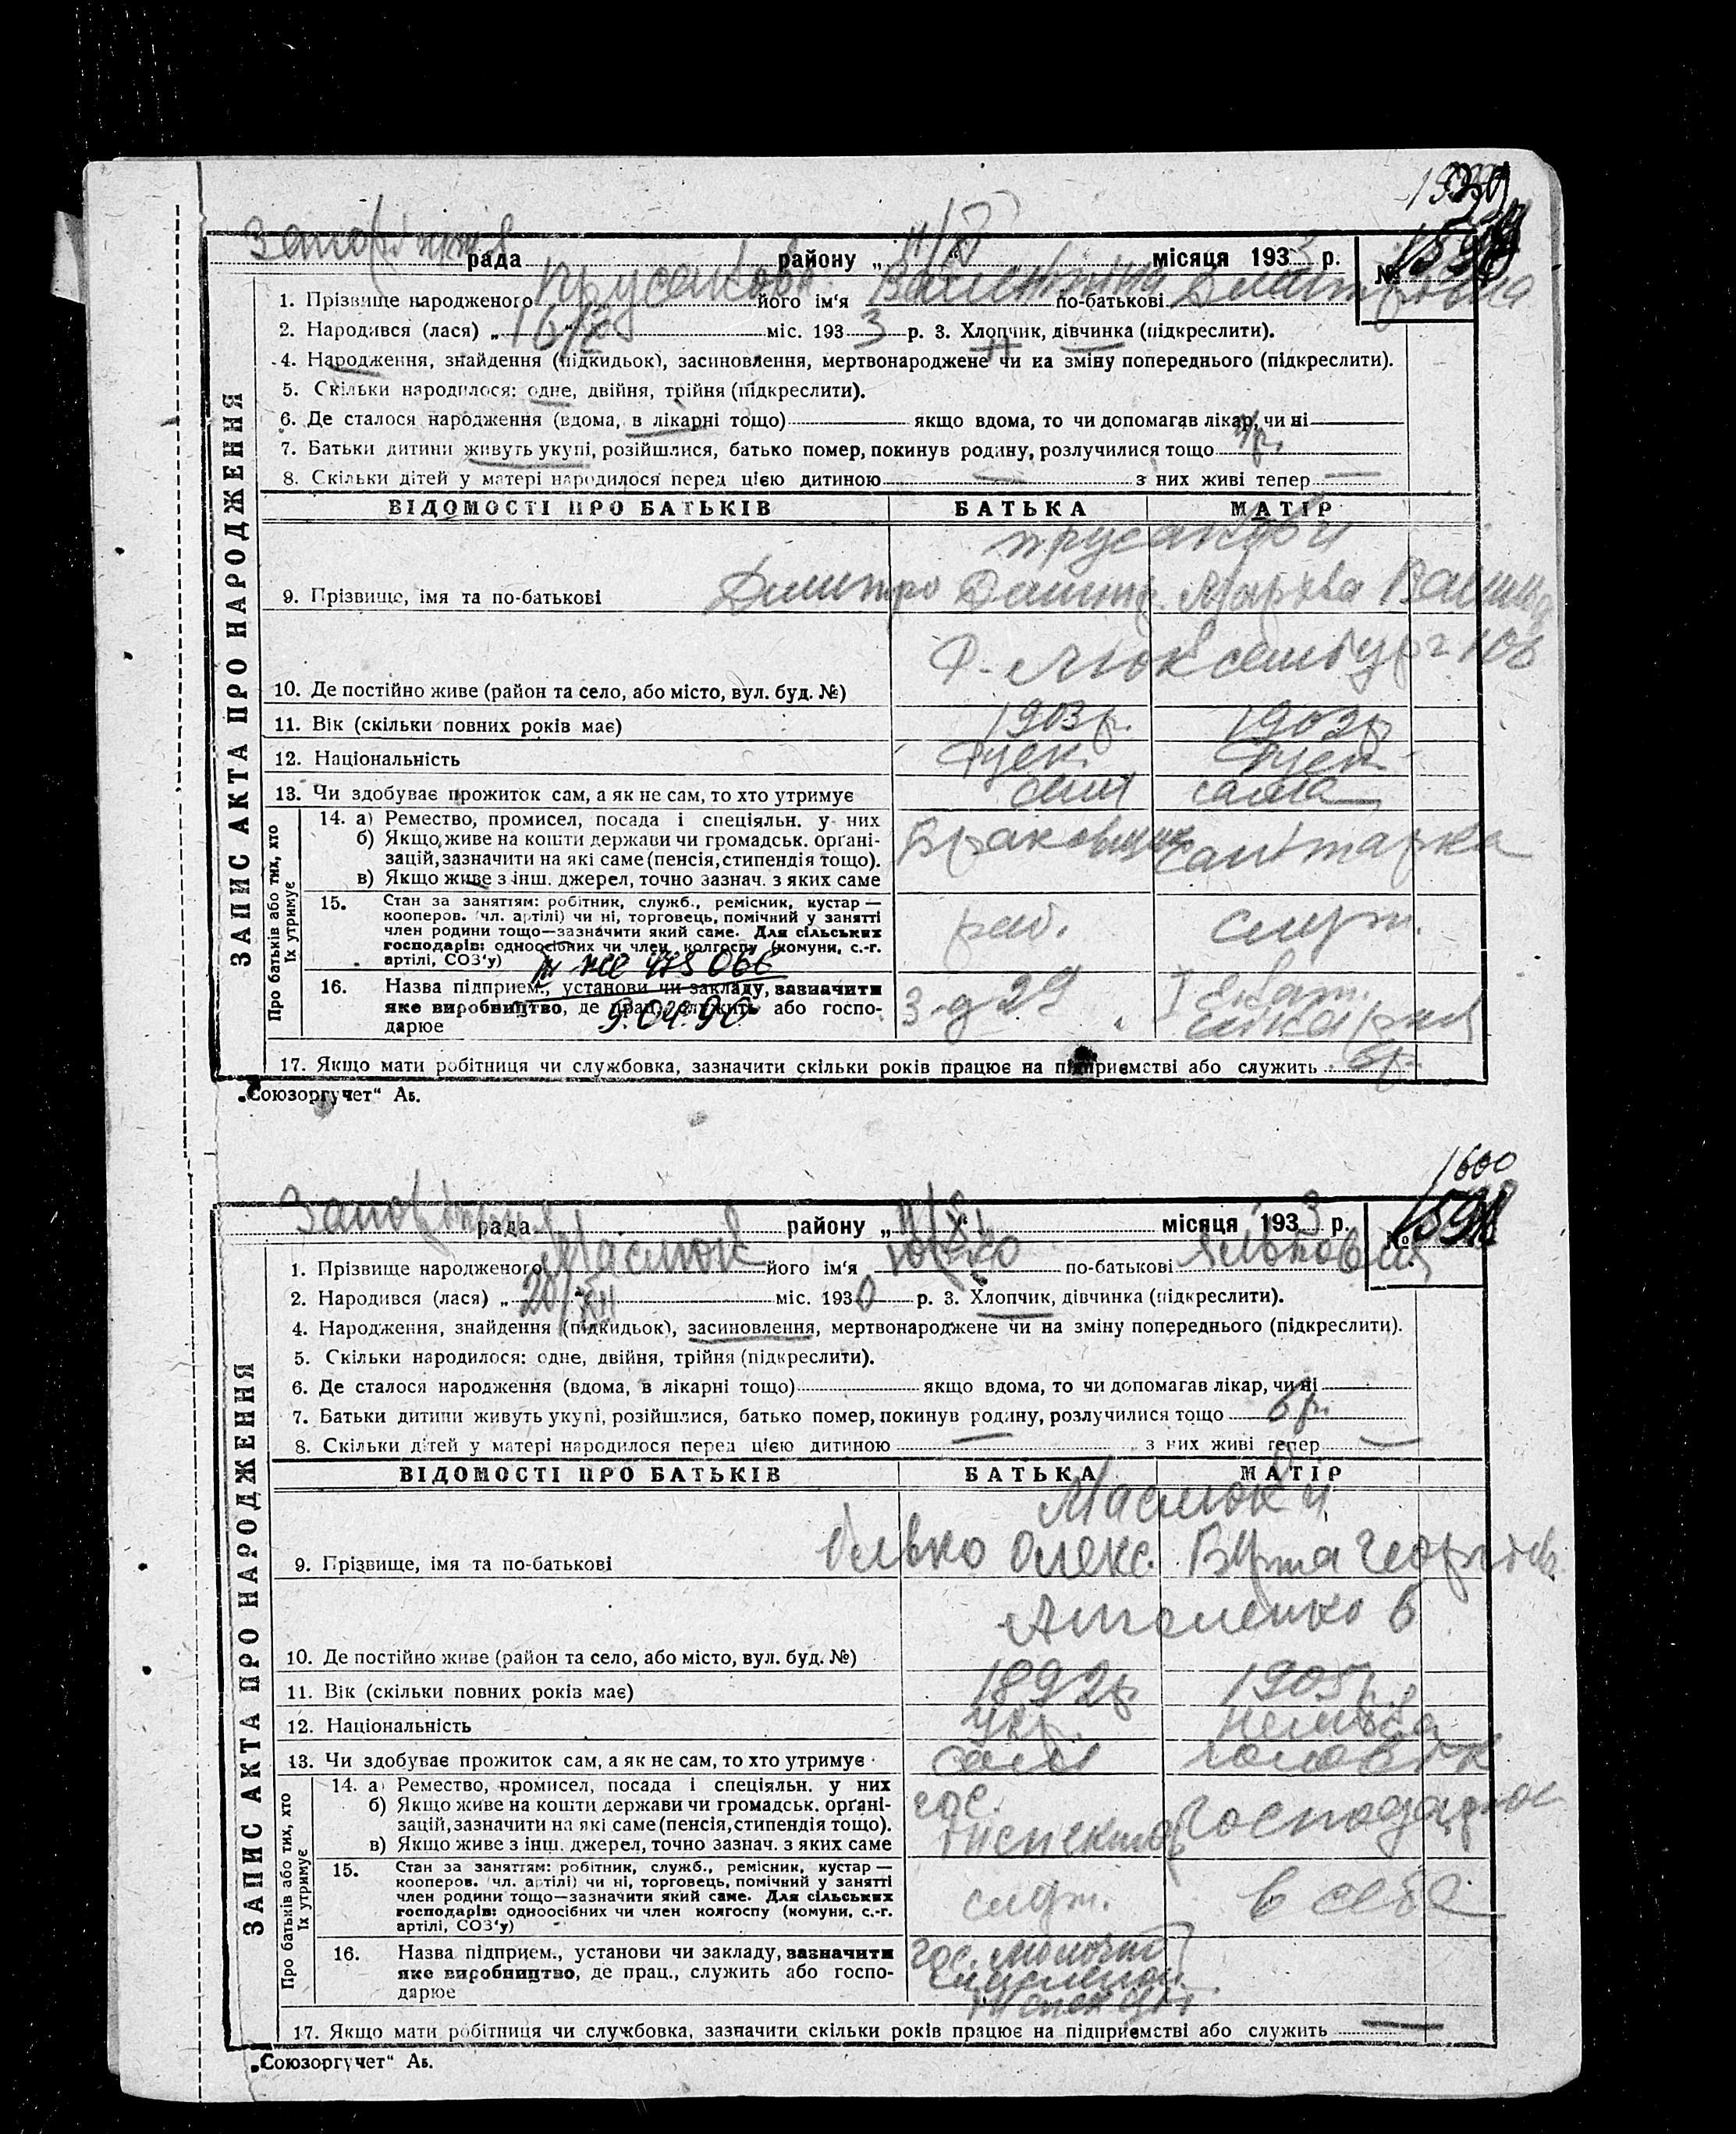 Запоріжжя рада району „11/XI“ місяця 1933 р. №
1. Прізвище народженого Прусакова його ім'я Валентина по-батькові Дмитровна
2. Народився (лася) „16/X міс. 1933 р. 3. Хлопчик, дівчинка (підкреслити).
4. Народження, знайдення (підкидьок), засиновлення, мертвонароджене чи на зміну попереднього (підкреслити).
5. Скільки народилося: одне, двійня, трійня (підкреслити).
6. Де сталося народження (вдома, в лікарні тощо) якщо вдома, то чи допомагав лікар, чи ні
7. Батьки дитини живуть укупі, розійшлися, батько помер, покинув родину, розлучилися тощо 4р.
8. Скільки дітей у матері народилося перед цією дитиною з них живі тепер
ЗАПИС АКТА ПРО НАРОДЖЕННЯ
ВІДОМОСТІ ПРО БАТЬКІВ БАТЬКА МАТІР
Прусакови
9. Прізвище, імя та по-батькові Дмитро Дмитр. Марфа
Р. Люксембург 108
10. Де постійно живе (район та село, або місто, вул. буд. №)
11. Вік (скільки повних років має) 1903р. 1903р
12. Національність руск. руск
13. Чи здобуває прожиток сам, а як не сам, то хто утримує сам сама
Про батьків або тих, хто їх утримує
14. а) Ремество, промисел, посада і спеціяльн. у них
б) Якщо живе на кошти держави чи громадськ. органі-
зацій, зазначити на які саме (пенсія, стипендія тощо). Браковщик санітарка
в) Якщо живе з інш. джерел, точно зазнач. з яких саме
15. Стан за заняттям: робітник, служб., ремісник, кустар —
кооперов. (чл. артілі) чи ні, торговець, помічний у занятті
член родини тощо—зазначити який саме. Для сільських роб. служ.
господарів: одноосібних чи член колгоспу (комуни, с.-г.
артілі, СОЗ'у)
16. Назва підприєм., установи чи закладу, зазначити
яке виробництво, де прац., служить або госпо- З-д 29
дарюе лікарня
9.04.90
17. Якщо мати робітниця чи службовка, зазначити скільки років працює на підприемстві або служить 6р.
„Союзоргучет“ Аб.
1600
Запоріжжя рада району „11/XI“ місяця 1933 р. №
1. Прізвище народженого Маслюк його ім'я по-батькові
2. Народився (лася) „20/XII міс. 1930 р. 3. Хлопчик, дівчинка (підкреслити).
4. Народження, знайдення (підкидьок), засиновлення, мертвонароджене чи на зміну попереднього (підкреслити).
5. Скільки народилося: одне, двійня, трійня (підкреслити).
6. Де сталося народження (вдома, в лікарні тощо) якщо вдома, то чи допомагав лікар, чи ні
7. Батьки дитини живуть укупі, розійшлися, батько помер, покинув родину, розлучилися тощо 6р.
8. Скільки дітей у матері народилося перед цією дитиною з них живі тепер
ЗАПИС АКТА ПРО НАРОДЖЕННЯ
ВІДОМОСТІ ПРО БАТЬКІВ БАТЬКА МАТІР
Маслюки
9. Прізвище, імя та по-батькові Олекс. Берта Георгіев.
10. Де постійно живе (район та село, або місто, вул. буд. №)
11. Вік (скільки повних років має) 1892р 1905р.
12. Національність Укр. немка
13. Чи здобуває прожиток сам, а як не сам, то хто утримує сам чоловік
Про батьків або тих, хто їх утримує
14. а) Ремество, промисел, посада і спеціяльн. у них гос.
б) Якщо живе на кошти держави чи громадськ. органі-
зацій, зазначити на які саме (пенсія, стипендія тощо). інспектор господарює
в) Якщо живе з інш. джерел, точно зазнач. з яких саме
15. Стан за заняттям: робітник, служб., ремісник, кустар —
кооперов. (чл. артілі) чи ні, торговець, помічний у занятті
член родини тощо—зазначити який саме. Для сільських служ. в себе
господарів: одноосібних чи член колгоспу (комуни, с.-г.
артілі, СОЗ'у)
16. Назва підприєм., установи чи закладу, зазначити гос. молочно
яке виробництво, де прац., служить або госпо-
дарюе
17. Якщо мати робітниця чи службовка, зазначити скільки років працює на підприемстві або служить
„Союзоргучет“ Аб.